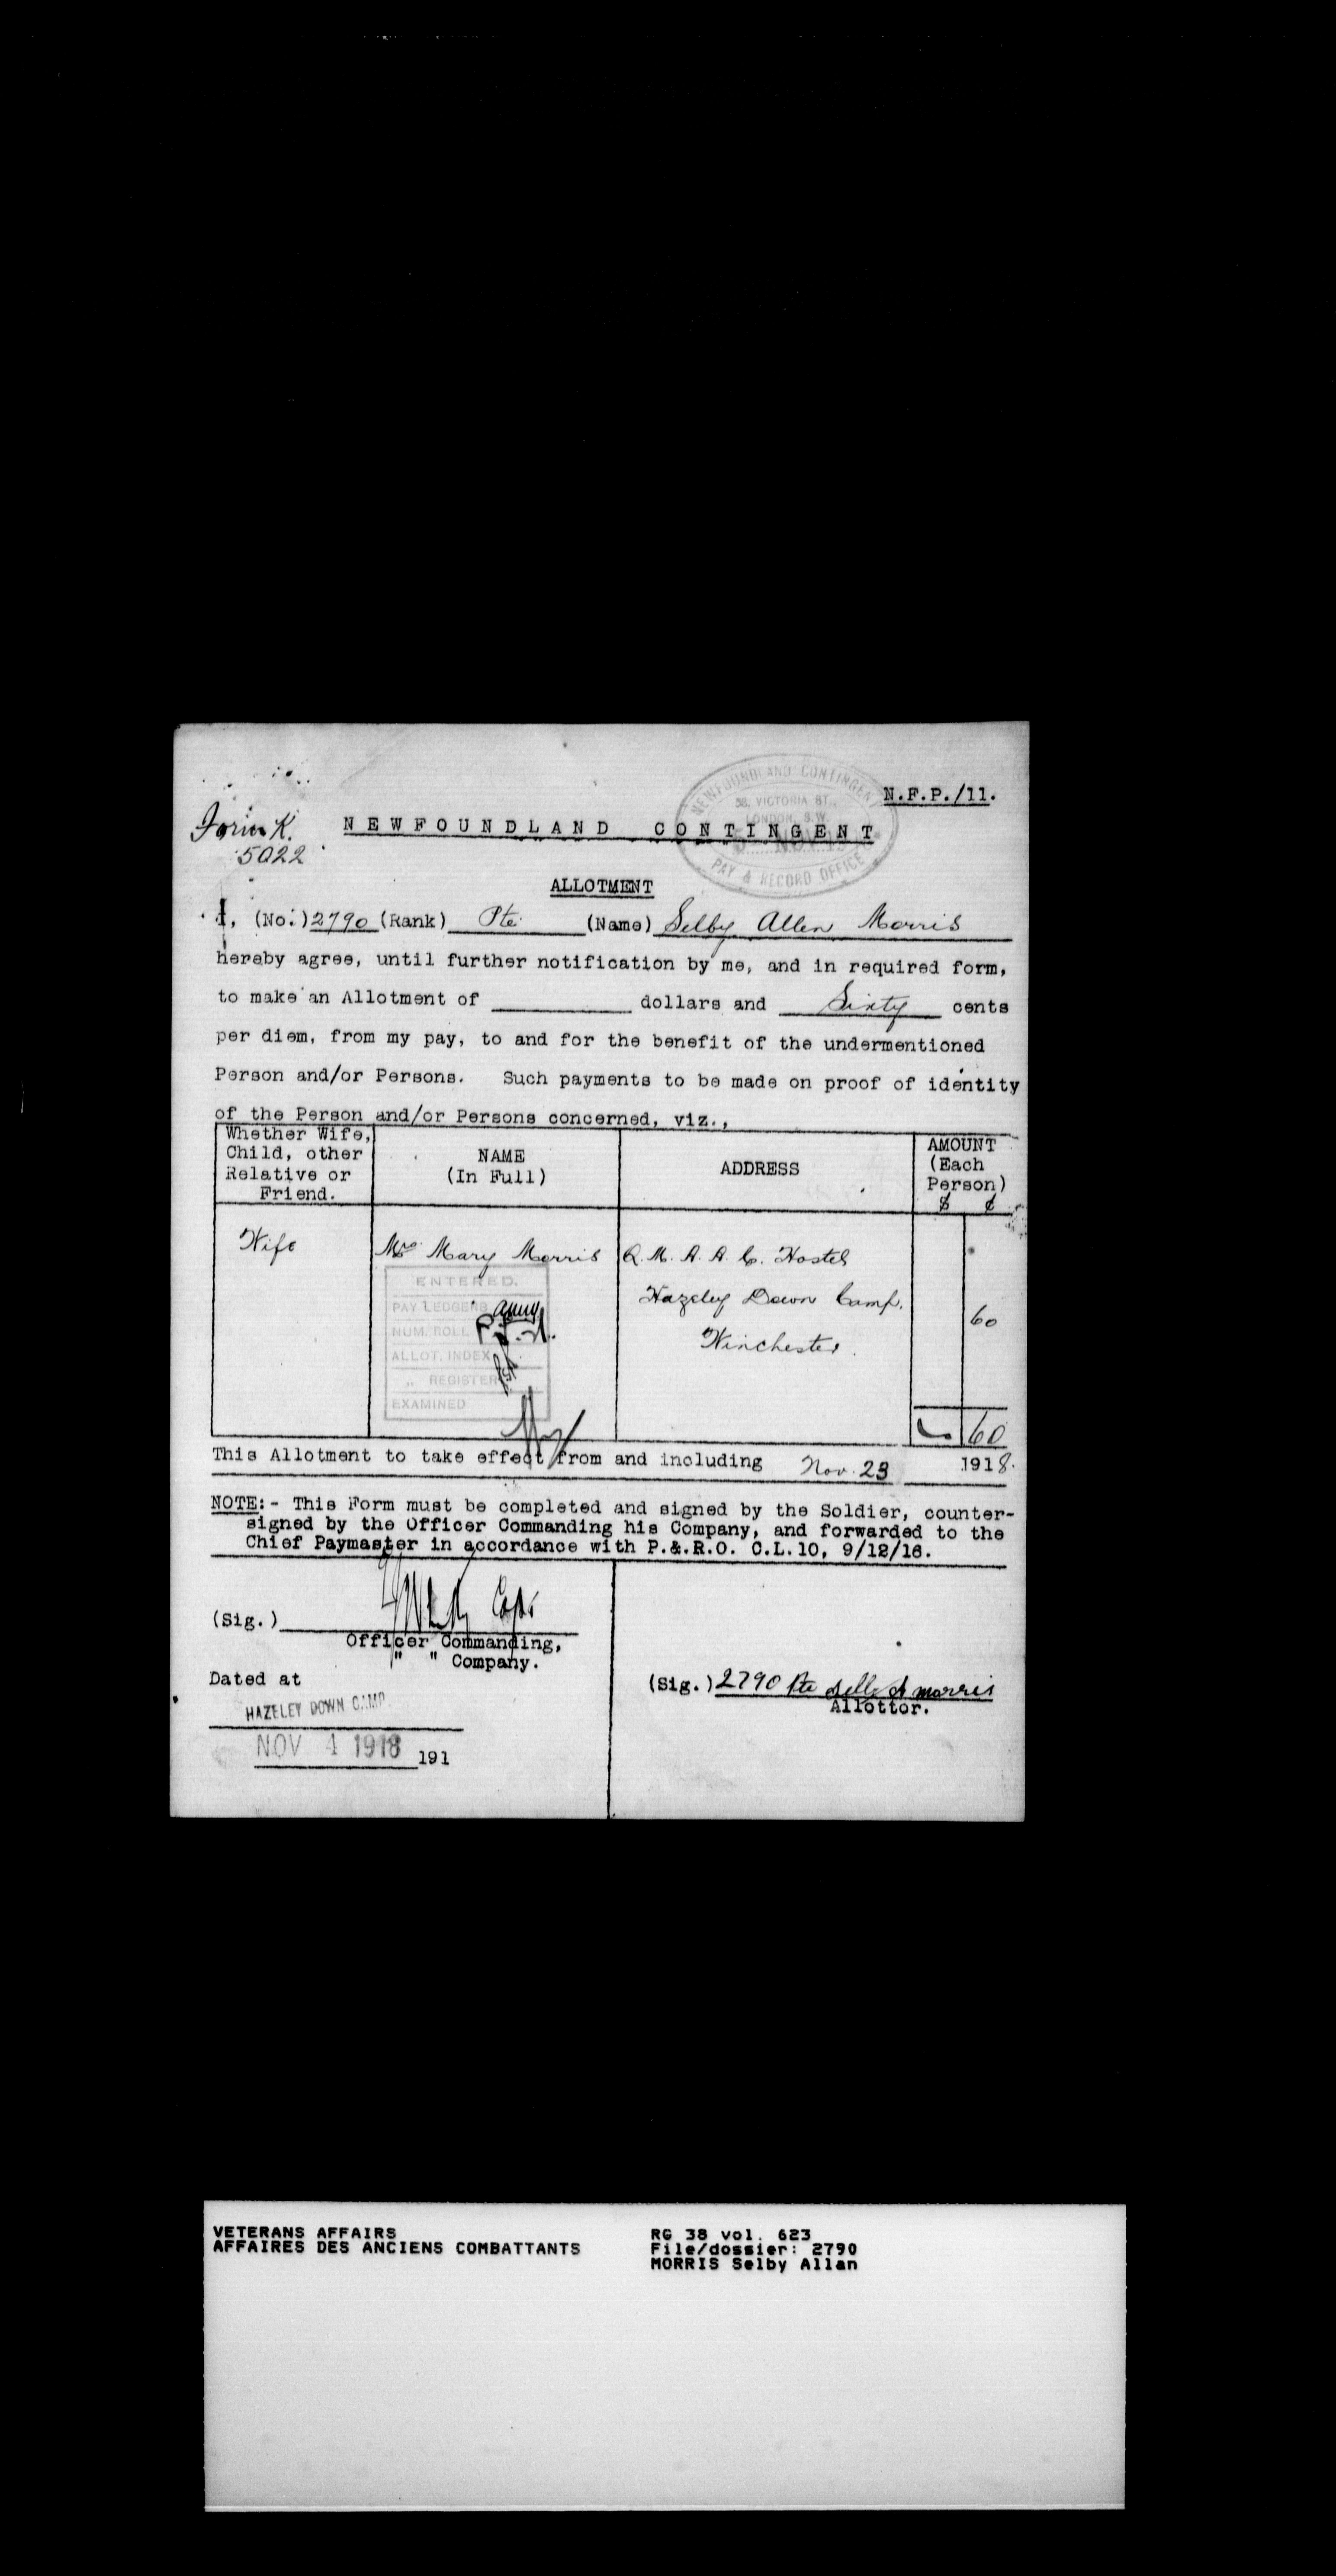 N.F.P./11.
NEWFOUNDLAND CONTINGENT
38, VICTORIA ST.,
LONDON, S.W.
PAY & RECORD OFFICE
Form K.
5022
NEWFOUNDLAND CONTINGENT
ALLOTMENT
I, (No.) 2790 (Rank) Pte (Name) Selby Allen Morris
hereby agree, until further notification by me, and in required form,
to make an Allotment of dollars and Sixty cents
per diem, from my pay, to and for the benefit of the undermentioned
Person and/or Persons. Such payments to be made on proof of identity
of the Person and/or Persons concerned, viz.,
Whether Wife, Child, other Relative or Friend.
NAME (In Full)
ADDRESS
AMOUNT (Each Person) $ ¢
Wife Mrs Mary Morris Q.M.A.A.C. Hostel
Hazeley Down Camp.
60
Winchester.
ENTERED.
PAY LEDGERS
NUM. ROLL
ALLOT. INDEX
„ REGISTER
EXAMINED
60
This Allotment to take effect from and including Nov. 23 1918.
NOTE:- This Form must be completed and signed by the Soldier, counter-
signed by the Officer Commanding his Company, and forwarded to the
Chief Paymaster in accordance with P.&.R.O. C.L.10, 9/12/16.
(Sig.) Capt
Officer Commanding,
" " Company.
Dated at
HAZELEY DOWN CAMP.
NOV 4 1918 191
(Sig.) 2790 Pte Selby A morris
Allottor.
VETERANS AFFAIRS
AFFAIRES DES ANCIENS COMBATTANTS
RG 38 vol. 623
File/dossier: 2790
MORRIS Selby Allan